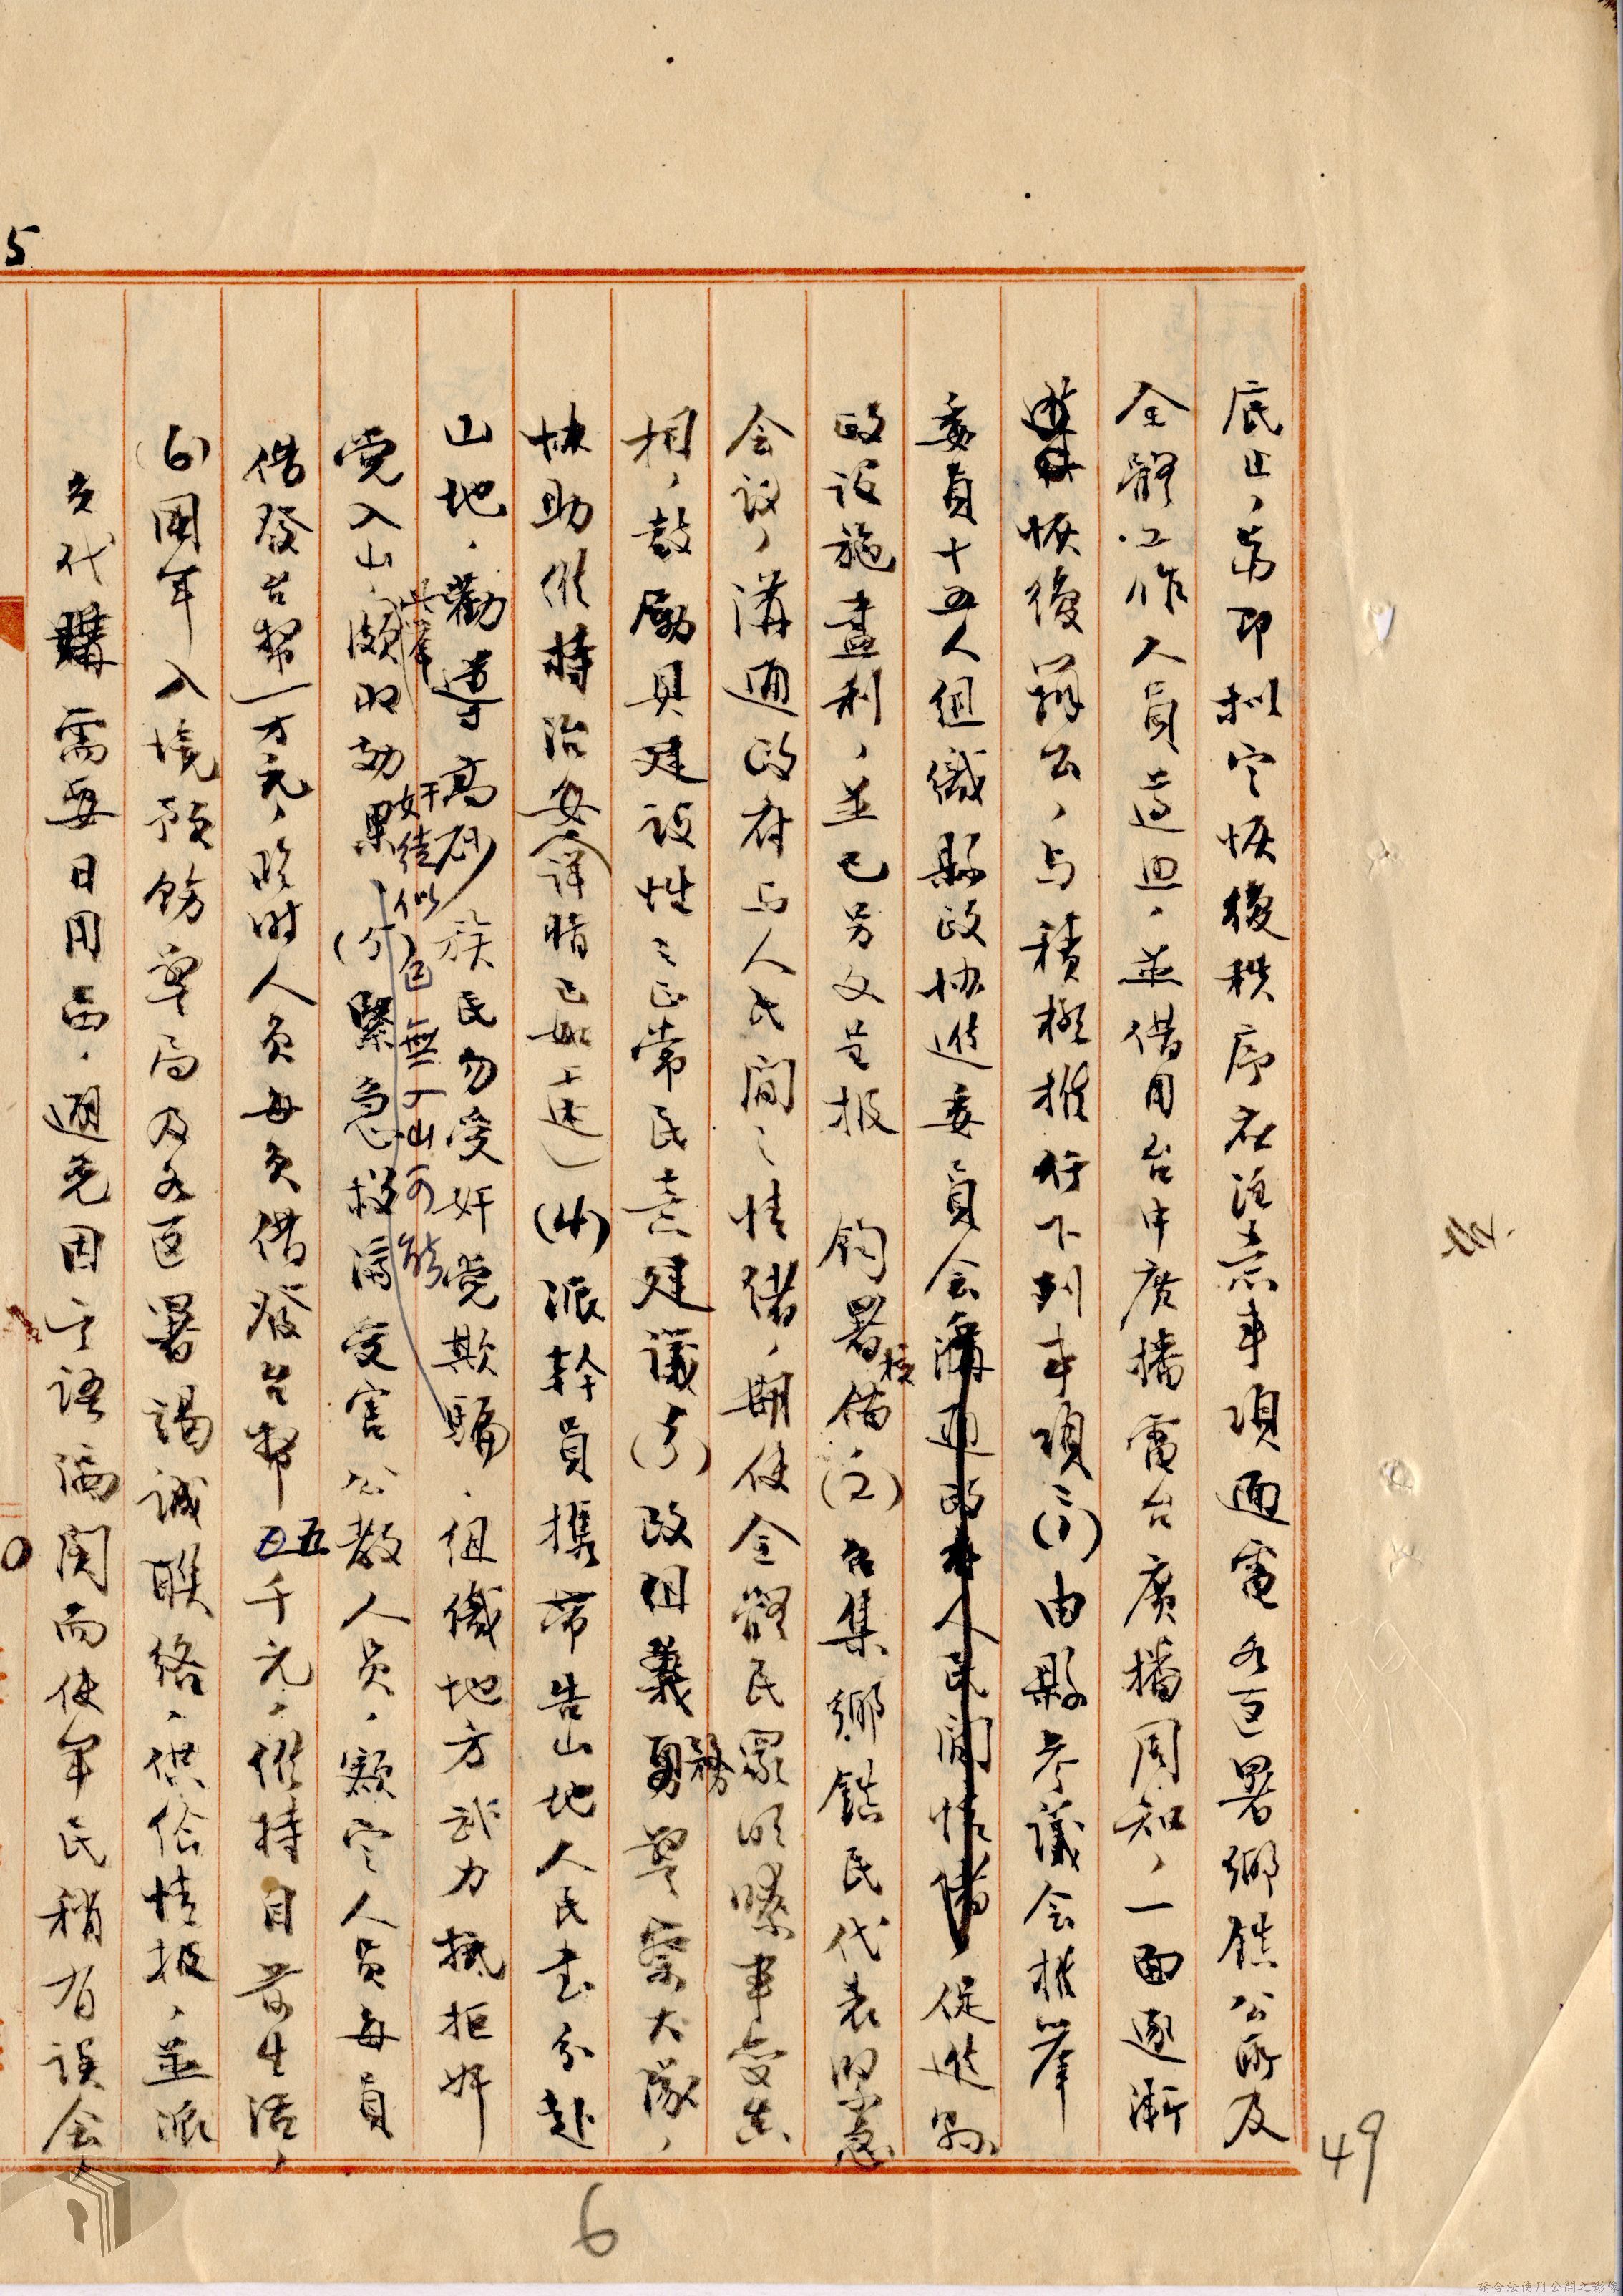 底止，當即拟定恢復秩序应注意事項通電各区署鄉鎮公所及
全體工作人員遵照，並借用台中广播電台廣播周知，一面逐漸
恢復辦公，与積極推行下列事項：(1)由縣参議会推舉
委員十五人組織縣政协進委員会溝通政府人民間情緒，促進縣
政設施盡利，並已另文呈报　鈞署核備(2)召集鄉鎮民代表緊急
会议，溝通政府与人民間之情緒，期使全體民眾明暸事变真
相，鼓勵具建設性之正常民意建議(3)改组義勇警察大隊，
协助維持治安（詳賠已如上述）(4)派幹員携带告山地人民书分赴
山地，勸導高砂族民勿受奸党欺騙，组織地方武力抵拒奸
党入山，此舉頗收効果，奸徒似已無入山可能(5)緊急救濟受害公教人員，额定人員每員
借發台幣一万元，临时人员每员借發台幣五千元，維持目前生活，
(6)國軍入境預飭警局及各区署竭诚联络，供给情报，並派
员代購需要日用品，避免因言语隔阂而使军民稍有誤会，
5
49
6
請合法使用公開之影像